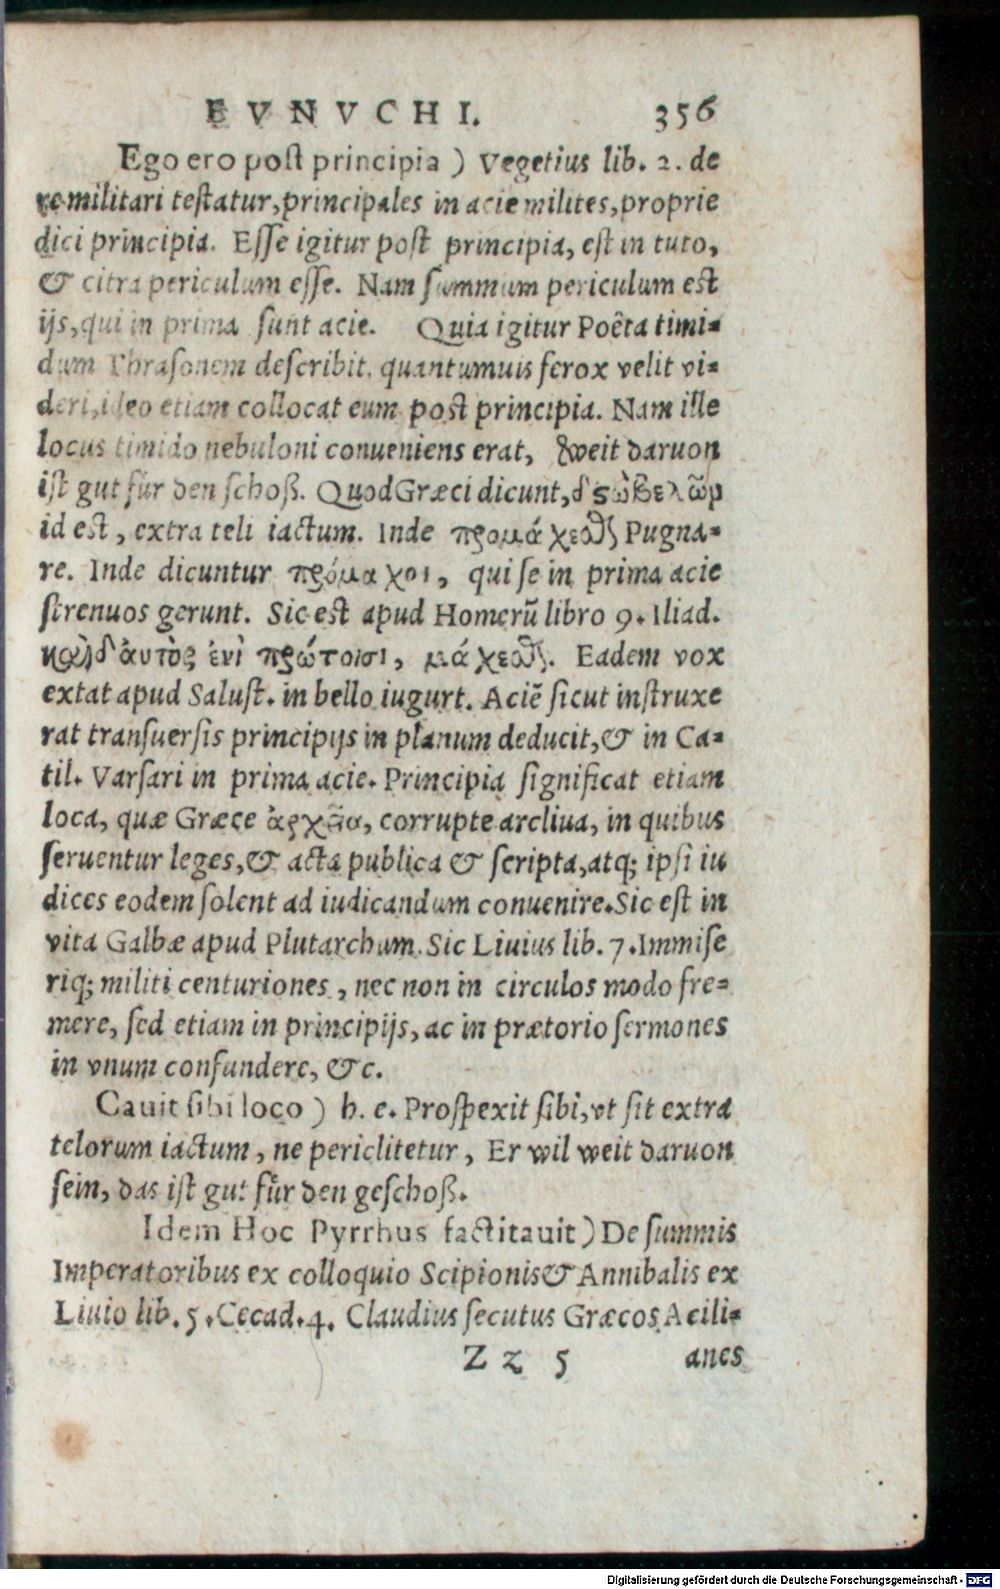 EVNVCHI. 356
Ego ero post principia) Vegetius lib. 2. de
re militari testatur, principales in acie milites, proprie
dici principia. Esse igitur post principia, est in tuto,
& citra periculum esse. Nam summum periculum est
ijs, qui in prima sunt acie. Quia igitur Poêta timi=
dum Thrasonem describit, quantumuis ferox velit vi=
deri, ideo etiam collocat eum post principia. Nam ille
locus timido nebuloni conueniens erat, weit daruon
ist gut für den schoß. Quod Græci dicunt,
id est, extra teli iactum. Inde προμάχεσθαι Pugna=
re. Inde dicuntur πρόμαχοι, qui se in prima acie
strenuos gerunt. Sic est apud Homerū libro 9. Iliad.
καὶ δ' αυτὸς ἐνὶ πρώτοισι, μάχεσθαι. Eadem vox
extat apud Salust. in bello iugurt. Aciē sicut instruxe
rat transuersis principijs in planum deducit, & in Ca=
til. Varsari in prima acie. Principia significat etiam
loca, quæ Græce ἀρχεῖα, corrupte arcliua, in quibus
seruentur leges, & acta publica & scripta, atq; ipsi iu
dices eodem solent ad iudicandum conuenire. Sic est in
vita Galbæ apud Plutarchum. Sic Liuius lib. 7. Immise
riq; militi centuriones, nec non in circulos modo fre=
mere, sed etiam in principijs, ac in prætorio sermones
in vnum confundere, &c.
Cauit sibi loco) h. e. Prospexit sibi, vt sit extra
telorum iactum, ne periclitetur, Er wil weit daruon
sein, das ist gut für den geschoß.
Idem Hoc Pyrrhus factitauit) De summis
Imperatoribus ex colloquio Scipionis & Annibalis ex
Liuio lib. 5. Cecad. 4. Claudius secutus Græcos Acili=
Z z 5 anes
Digitalisierung gefördert durch die Deutsche Forschungsgemeinschaft - DFG